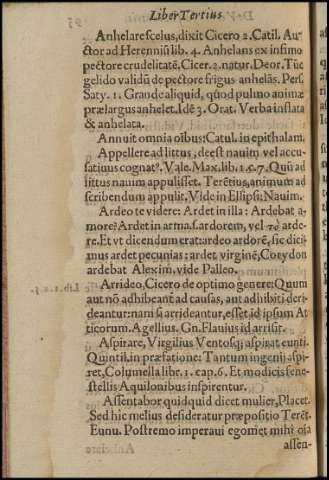 Liber Tertius.
Anhelare scelus, dixit Cicero 2. Catil. Au-
ctor ad Herenniū lib. 4. Anhelans ex infimo
pectore crudelitatē. Cicer. 2. natur. Deor. Tūc
gelido validū de pectore frigus anhelãs. Pers.
Saty. 1. Grande aliquid, quod pulmo animæ
prælargus anhelet. Idē 3. Orat. Verba inflata
& anhelata.
Annuit omnia oībus: Catul. in epithalam.
Appellere ad littus; deest nauim vel accu-
satiuus cognatꝰ. Vale. Max. lib. 1. c. 7. Quū ad
littus nauim appulisset. Terētius, animum ad
scribendum appulit. Vide in Ellipsi; Nauim.
Ardeo te videre: Ardet in illa: Ardebat a-
more: Ardet in arma. s. ardorem, vel τὸ arde-
re. Et vt dicendum erat: ardeo ardorē, sic dici-
mus ardet pecunias: ardet virginē, Corydon
ardebat Alexim. vide Palleo.
Arrideo, Cicero de optimo genere: Quum
aut nō adhibeant ad causas, aut adhibiti deri-
deantur: nam si arrideantur, esset id ipsum At-
ticorum. Agellius. Gn. Flauius id arrisit.
Aspirare, Virgilius Ventosq; aspirat eunti.
Quintil, in præfatione: Tantum ingenij aspi-
ret, Columella libr. 1. cap. 6. Et modicis fene-
stellis Aquilonibus inspirentur.
Assentabor quidquid dicet mulier, Placet.
Sed hic melius desideratur præpositio Terēt.
Eunu. Postremo imperaui egomet mihi oīa
assen-
Lib. 1. c. 5